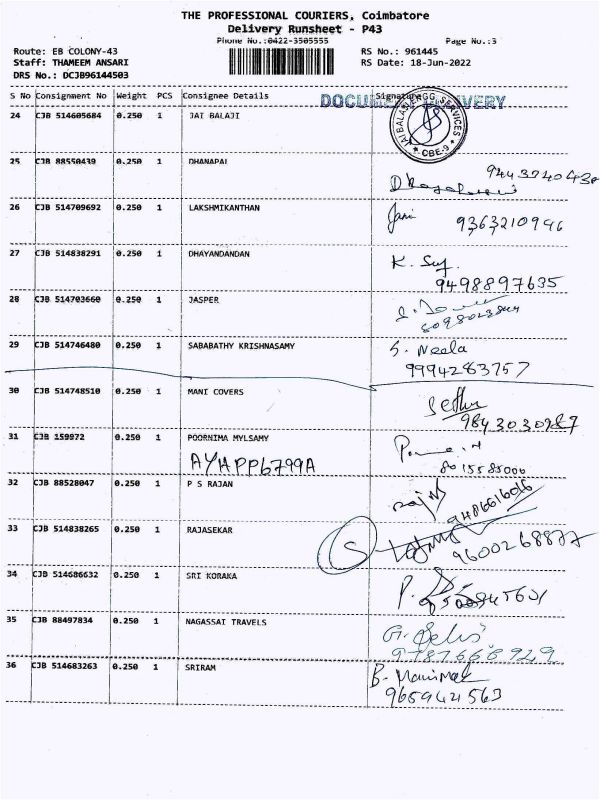 THE PROFESSIONAL COURIERS, Coimbatore
Delivery Runsheet - P43
Phone No.:0422-3505555 Page No.:3
Route: EB COLONY-43 RS No.: 961445
Staff: THAMEEM ANSARI RS Date: 18-Jun-2022
DRS No.: DCJB96144503
S No Consignment No Weight PCS Consignee Details Signature
24 CJB 514605684 0.250 1 JAI BALAJI
25 CJB 88550439 0.250 1 DHANAPAL
26 CJB 514709692 0.250 1 LAKSHMIKANTHAN Jani
9363210946
27 CJB 514838291 0.250 1 DHAYANDANDAN
9498897635
28 CJB 514703660 0.250 1 JASPER
29 CJB 514746480 0.250 1 SABABATHY KRISHNASAMY S. Neela
9994283757
30 CJB 514748510 0.250 1 MANI COVERS
9843030287
31 CJB 159972 0.250 1 POORNIMA MYLSAMY
AYHPP6799A 8015585000
32 CJB 88528047 0.250 1 P S RAJAN
9486616016
33 CJB 514838265 0.250 1 RAJASEKAR
9600268877
34 CJB 514686632 0.250 1 SRI KORAKA
35 CJB 88497834 0.250 1 NAGASSAI TRAVELS
9787668929
36 CJB 514683263 0.250 1 SRIRAM